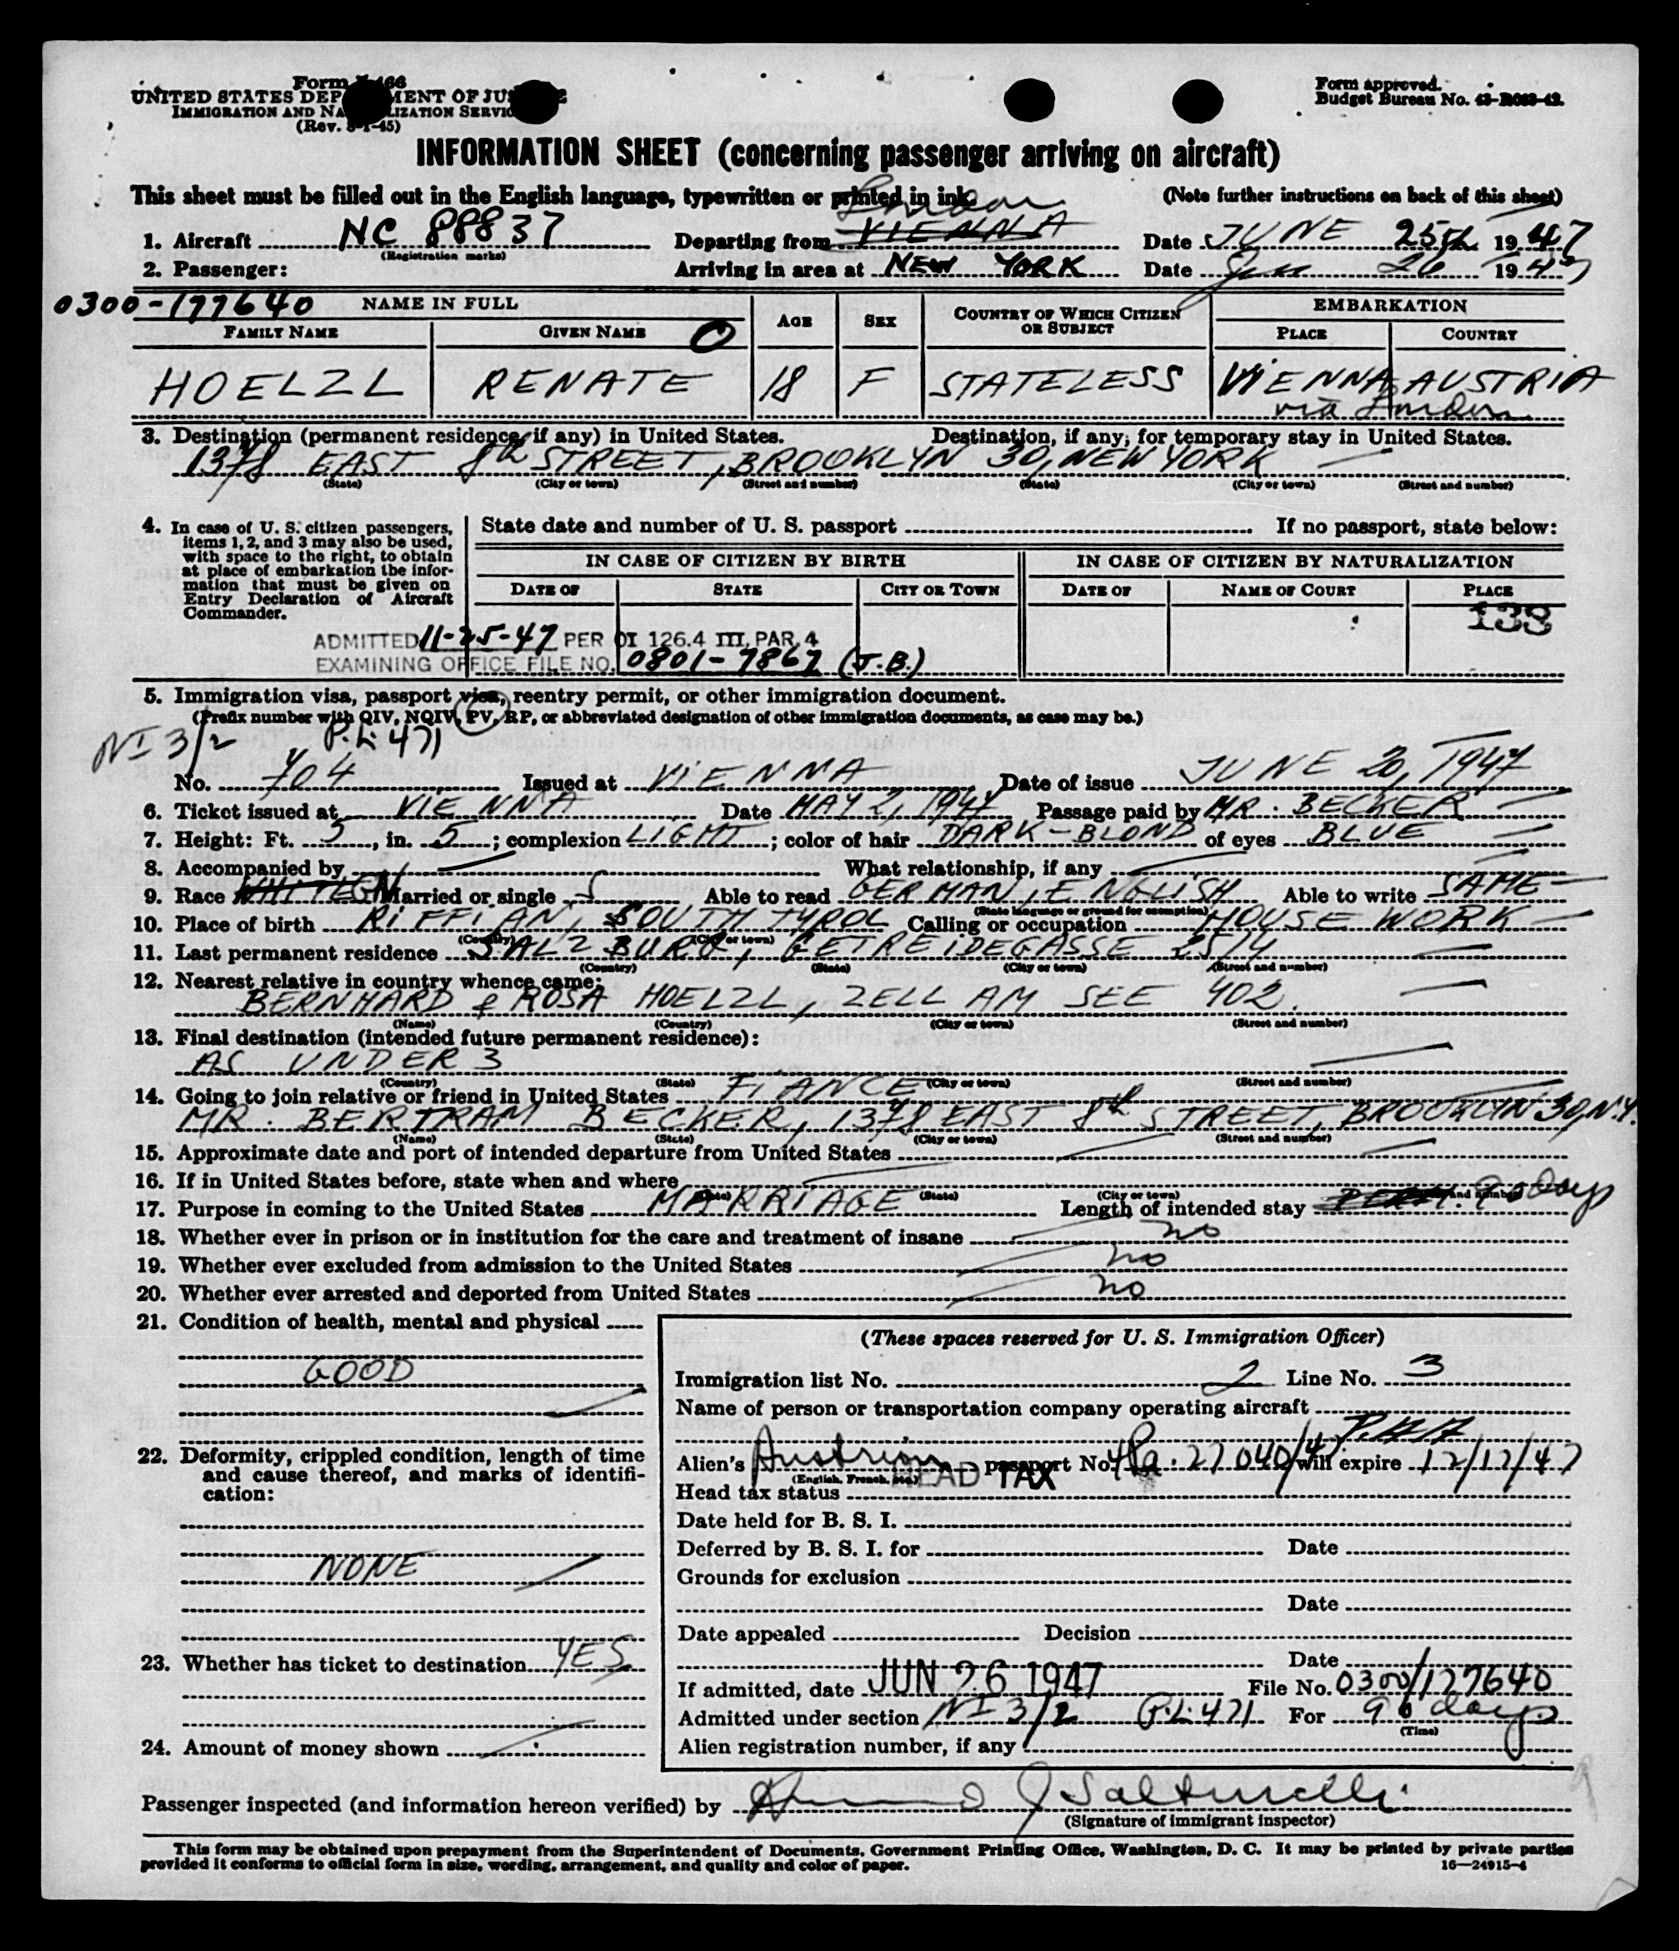 Form I-466
UNITED STATES DEPARTMENT OF JUSTICE
IMMIGRATION AND NATURALIZATION SERVICE
(Rev. 3-1-45)
Form approved.
Budget Bureau No.
INFORMATION SHEET (concerning passenger arriving on aircraft)
This sheet must be filled out in the English language, typewritten or printed in ink. (Note further instructions on back of this sheet)
London
1. Aircraft NC 88837 Departing from VIENNA Date JUNE 25th 1947
(Registration marks)
2. Passenger: Arriving in area at NEW YORK Date Jun 26 1947
0300-177640 NAME IN FULL AGE SEX COUNTRY OF WHICH CITIZEN OR SUBJECT EMBARKATION
FAMILY NAME GIVEN NAME PLACE COUNTRY
HOELZL RENATE 18 F STATELESS VIENNA AUSTRIA
via London
3. Destination (permanent residence, if any) in United States. Destination, if any, for temporary stay in United States.
1378 EAST 8th STREET, BROOKLYN 30, NEW YORK
(State) (City or town) (Street and number) (State) (City or town) (Street and number)
4. In case of U. S. citizen passengers, items 1, 2, and 3 may also be used, with space to the right, to obtain at place of embarkation the information that must be given on Entry Declaration of Aircraft Commander.
State date and number of U. S. passport If no passport, state below:
IN CASE OF CITIZEN BY BIRTH IN CASE OF CITIZEN BY NATURALIZATION
DATE OF STATE CITY OR TOWN DATE OF NAME OF COURT PLACE
138
ADMITTED 11-25-47 PER OI 126.4 III, PAR. 4
EXAMINING OFFICE FILE NO. 0801-7867 (J.B.)
5. Immigration visa, passport visa, reentry permit, or other immigration document.
(Prefix number with QIV, NQIV, PV, RP, or abbreviated designation of other immigration documents, as case may be.)
NI 3/2 P.L. 471
No. 704 Issued at VIENNA Date of issue JUNE 20, 1947
6. Ticket issued at VIENNA Date MAY 2, 1947 Passage paid by MR. BECKER
7. Height: Ft. 5, in. 5; complexion LIGHT; color of hair DARK-BLOND of eyes BLUE
8. Accompanied by What relationship, if any
9. Race WHITE Married or single S Able to read GERMAN, ENGLISH Able to write SAME
(State language or ground for exemption)
10. Place of birth RIFFIAN, SOUTH TYROL Calling or occupation HOUSE WORK
(Country) (City or town)
11. Last permanent residence SALZBURG, GETREIDEGASSE 25/4
(Country) (State) (City or town) (Street and number)
12. Nearest relative in country whence came:
BERNHARD & ROSA HOELZL, ZELL AM SEE 402.
(Name) (Country) (City or town) (Street and number)
13. Final destination (intended future permanent residence):
AS UNDER 3
(Country) (State) (City or town) (Street and number)
14. Going to join relative or friend in United States FIANCE
MR. BERTRAM BECKER, 1378 EAST 8th STREET, BROOKLYN 30, N.Y.
(Name) (State) (City or town) (Street and number)
15. Approximate date and port of intended departure from United States
16. If in United States before, state when and where
(State) (City or town)
17. Purpose in coming to the United States MARRIAGE Length of intended stay PERM. 90 days
18. Whether ever in prison or in institution for the care and treatment of insane no
19. Whether ever excluded from admission to the United States no
20. Whether ever arrested and deported from United States no
21. Condition of health, mental and physical
GOOD
22. Deformity, crippled condition, length of time and cause thereof, and marks of identification:
NONE
23. Whether has ticket to destination YES
24. Amount of money shown
(These spaces reserved for U. S. Immigration Officer)
Immigration list No. 2 Line No. 3
Name of person or transportation company operating aircraft
P.A.A.
Alien's Austrian passport No. will expire 12/12/47
(English, French, etc.)
HEAD TAX
Head tax status
Date held for B. S. I.
Deferred by B. S. I. for Date
Grounds for exclusion
Date
Date appealed Decision
Date
If admitted, date JUN 26 1947 File No. 0300/177640
Admitted under section NI 3/2 P.L. 471 For 90 days
(Time)
Alien registration number, if any
Passenger inspected (and information hereon verified) by
(Signature of immigrant inspector)
This form may be obtained upon prepayment from the Superintendent of Documents, Government Printing Office, Washington, D. C. It may be printed by private parties
provided it conforms to official form in size, wording, arrangement, and quality and color of paper. 16—24915-4